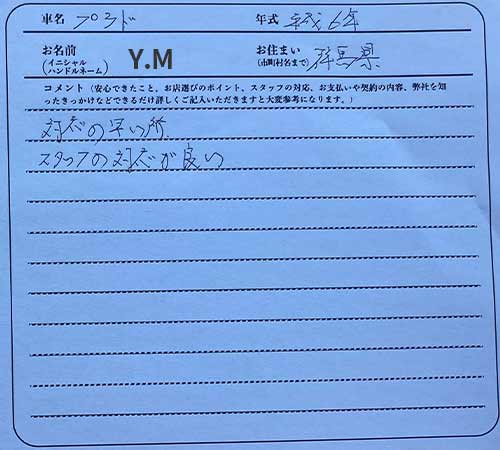 車名 プラド 年式 平成6年
お名前 (イニシャル ハンドルネーム) Y.M お住まい (市町村名まで) 群馬県
コメント(安心できたこと、お店選びのポイント、スタッフの対応、お支払いや契約の内容、弊社を知
ったきっかけなどできるだけ詳しくご記入いただきますと大変参考になります。)
対応の早い所、
スタッフの対応が良い